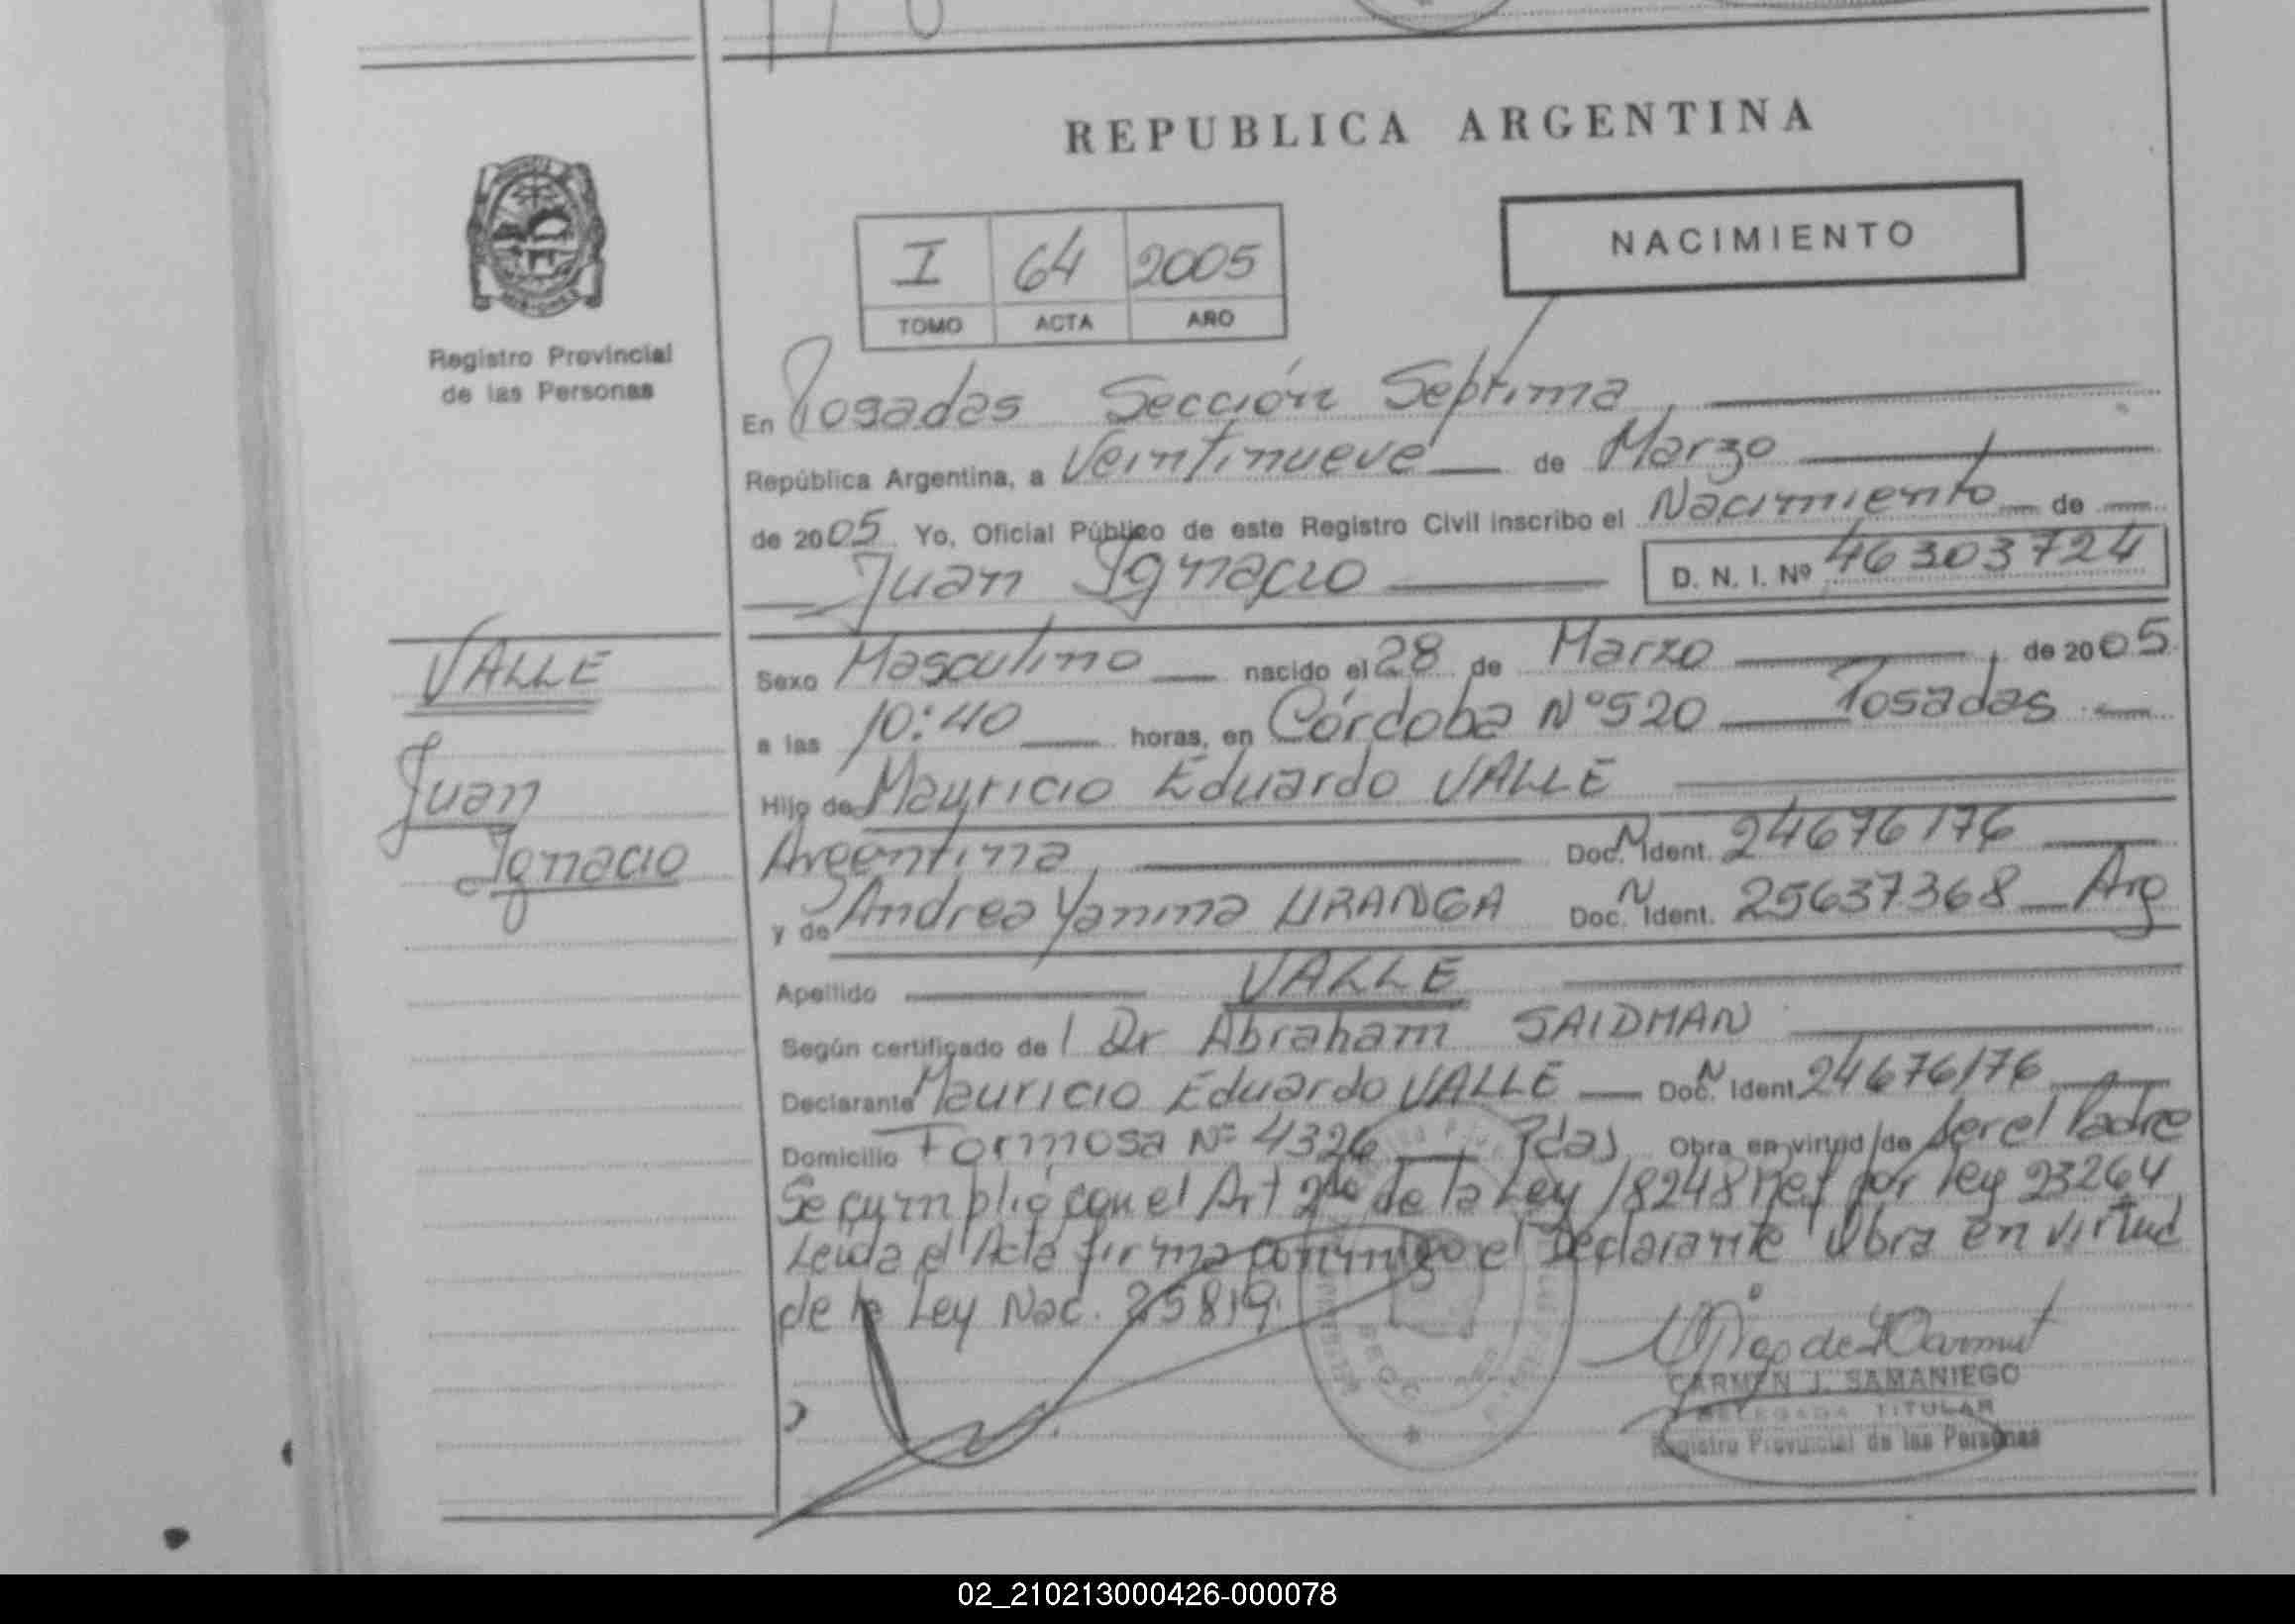 REPUBLICA ARGENTINA
NACIMIENTO
I 64 2005
TOMO ACTA AÑO
Registro Provincial
de las Personas
En Posadas Sección Septima
República Argentina, a Veintinueve de Marzo
de 2005 Yo, Oficial Público de este Registro Civil inscribo el Nacimiento de
Juan Ignacio D. N. I. Nº 46303724
VALLE
Juan
Ignacio
Sexo Masculino nacido el 28 de Marzo de 2005
a las 10:40 horas, en Córdoba Nº 520 Posadas
Hijo de Mauricio Eduardo VALLE
Argentina Doc. N Ident. 24676176
y de Andrea Yanina URANGA Doc. N Ident. 25637368 Arg
Apellido VALLE
Según certificado del Dr Abraham SAIDMAN
Declarante Mauricio Eduardo VALLE Doc. N Ident. 24676176
Domicilio Formosa Nº 4326 Pdas Obra en virtud de Ser el Padre
Se cumplió con el Art 2do de la Ley 18248 Ref por ley 23264
Leida el Acta firma conmigo el Declarante Obra en virtud
de la Ley Nac. 25819.
CARMEN J. SAMANIEGO
DELEGADA TITULAR
Registro Provincial de las Personas
02_210213000426-000078